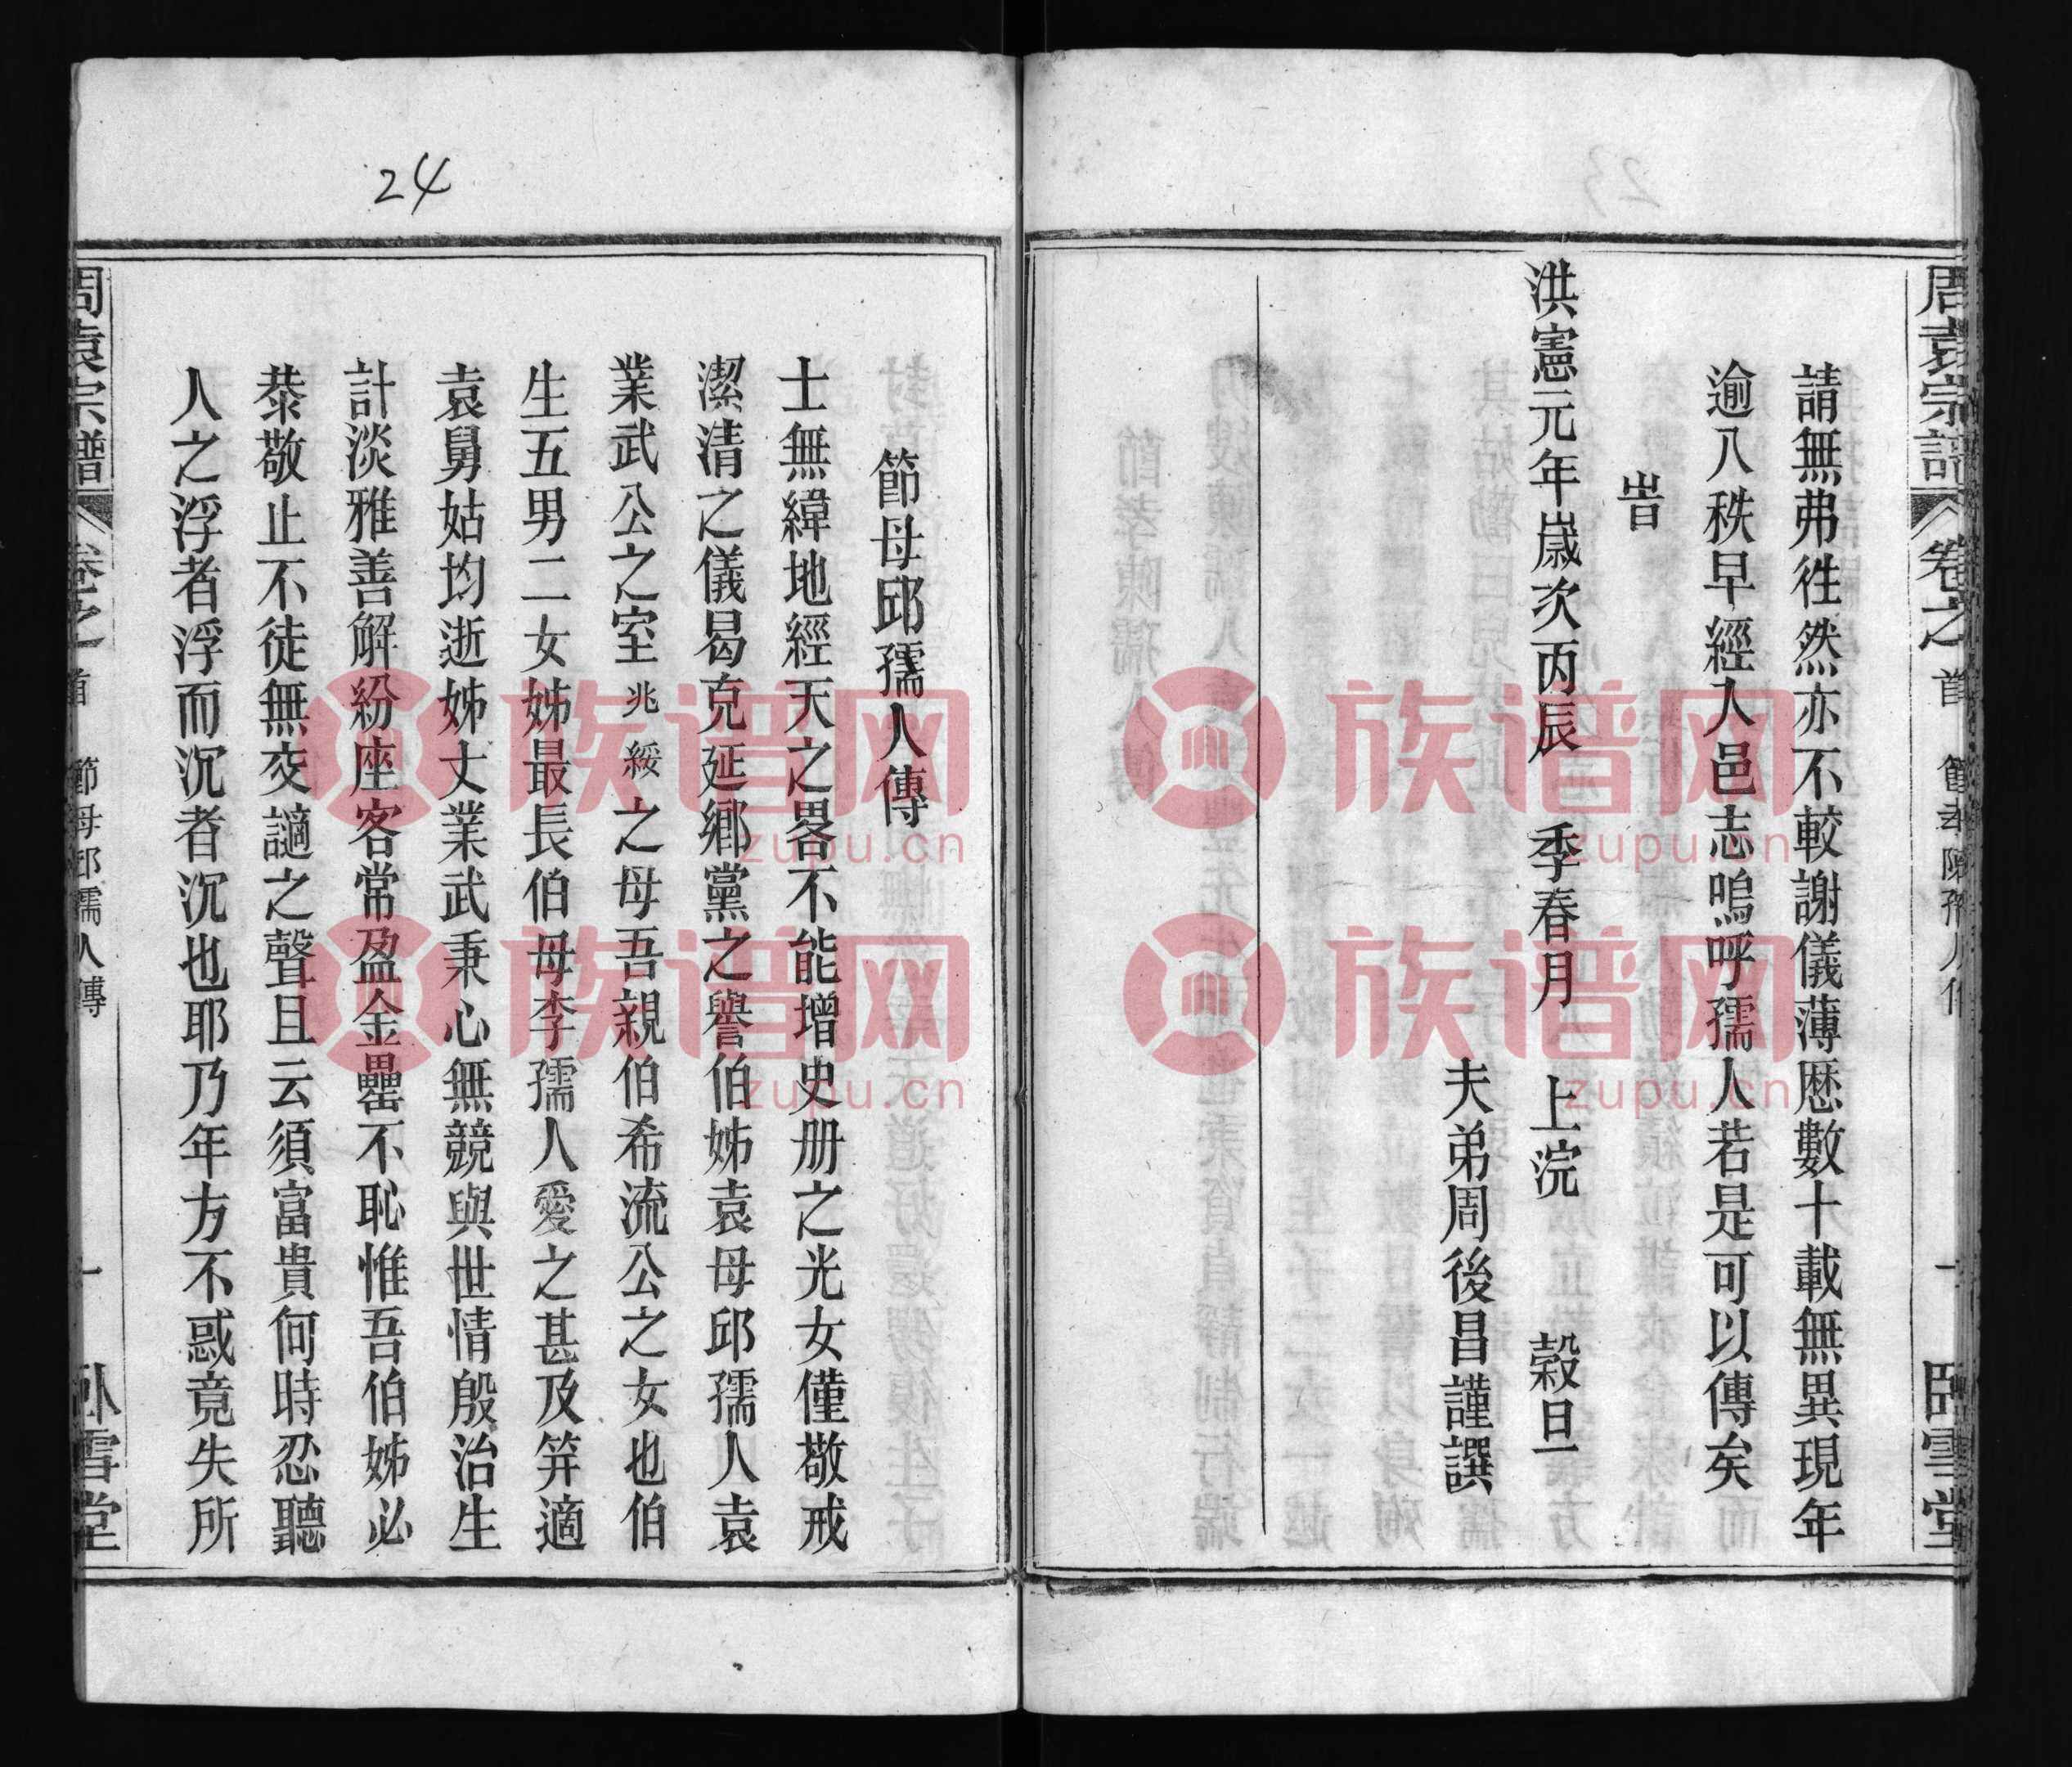 周袁宗譜 卷之首 節孝陳孺人傳 十 臥雪堂
請無弗徃然亦不較謝儀薄厯數十載無異現年
逾八秩早經入邑志嗚呼孺人若是可以傳矣
旹
洪憲元年嵗次丙辰 季春月 上浣 穀旦
夫弟周後昌謹譔
24
節母邱孺人傳
士無緯地經天之畧不能增史册之光女僅敬戒
潔清之儀曷克延鄉黨之譽伯姊袁母邱孺人袁
業武公之室兆綏之母吾親伯希流公之女也伯
生五男二女姊最長伯母李孺人愛之甚及笄適
袁舅姑均逝姊丈業武秉心無競與世情殷治生
計淡雅善解紛座客常盈金罍不恥惟吾伯姊必
恭敬止不徒無交讁之聲且云須富貴何時忍聽
人之浮者浮而沉者沉也耶乃年方不惑竟失所
周袁宗譜 卷之首 節母邱孺人傳 十 臥雪堂
族谱网
zupu.cn
族谱网
zupu.cn
族谱网
zupu.cn
族谱网
zupu.cn